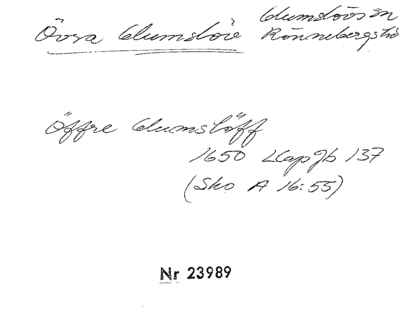 Övra Glumslöv Glumslövs sn
Rönnebergs hd
Öffre Glumslöff
1650 LLapjb 137
(Sko A 16:55)
Nr 23989